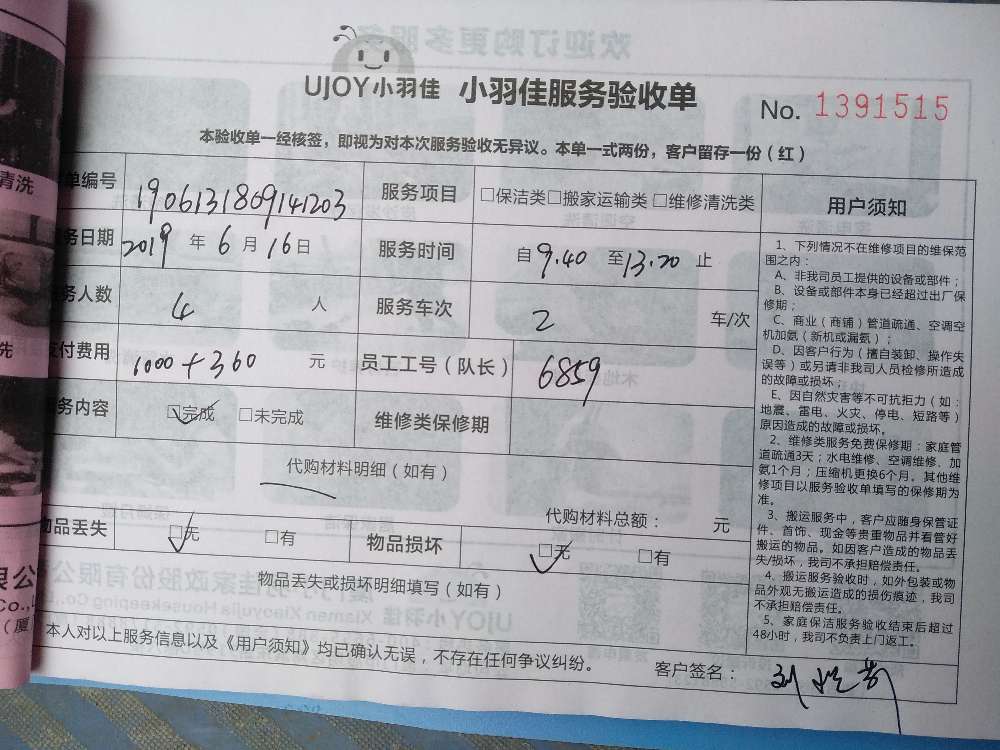 UJOY小羽佳 小羽佳服务验收单
No. 1391515
本验收单一经核签，即视为对本次服务验收无异议。本单一式两份，客户留存一份（红）
单编号 1906131869141203 服务项目 □保洁类□搬家运输类 □维修清洗类
务日期 2019 年 6 月 16 日 服务时间 自 9.40 至 13.20 止
务人数 4 人 服务车次 2 车/次
支付费用 1000+360 元 员工工号（队长） 6859
务内容 □完成 □未完成 维修类保修期
代购材料明细（如有）
代购材料总额： 元
物品丢失 □无 □有 物品损坏 □无 □有
物品丢失或损坏明细填写（如有）
本人对以上服务信息以及《用户须知》均已确认无误，不存在任何争议纠纷。 客户签名：
用户须知
1、下列情况不在维修项目的维保范
围之内：
A、非我司员工提供的设备或部件；
B、设备或部件本身已经超过出厂保
修期；
C、商业（商铺）管道疏通、空调空
机加氨（新机或漏氨）；
D、因客户行为（擅自装卸、操作失
误等）或另请非我司人员检修所造成
的故障或损坏；
E、因自然灾害等不可抗拒力（如：
地震、雷电、火灾、停电、短路等）
原因造成的故障或损坏。
2、维修类服务免费保修期：家庭管
道疏通3天；水电维修、空调维修、加
氨1个月；压缩机更换6个月。其他维
修项目以服务验收单填写的保修期为
准。
3、搬运服务中，客户应随身保管证
件、首饰、现金等贵重物品并看管好
搬运的物品。如因客户造成的物品丢
失/损坏，我司不承担赔偿责任。
4、搬运服务验收时，如外包装或物
品外观无搬运造成的损伤痕迹，我司
不承担赔偿责任。
5、家庭保洁服务验收结束后超过
48小时，我司不负责上门返工。
清洗
洗
限公
Co.,L
（厦